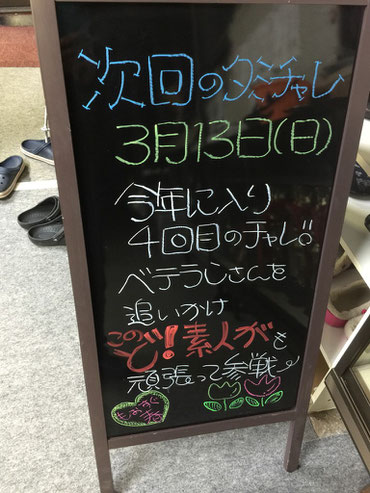 次回のタミチャレ
3月13日(日)
今年に入り
4回目のチャレ!!
ベテランさんを
追いかけ
このど!素人がも
頑張って参戦